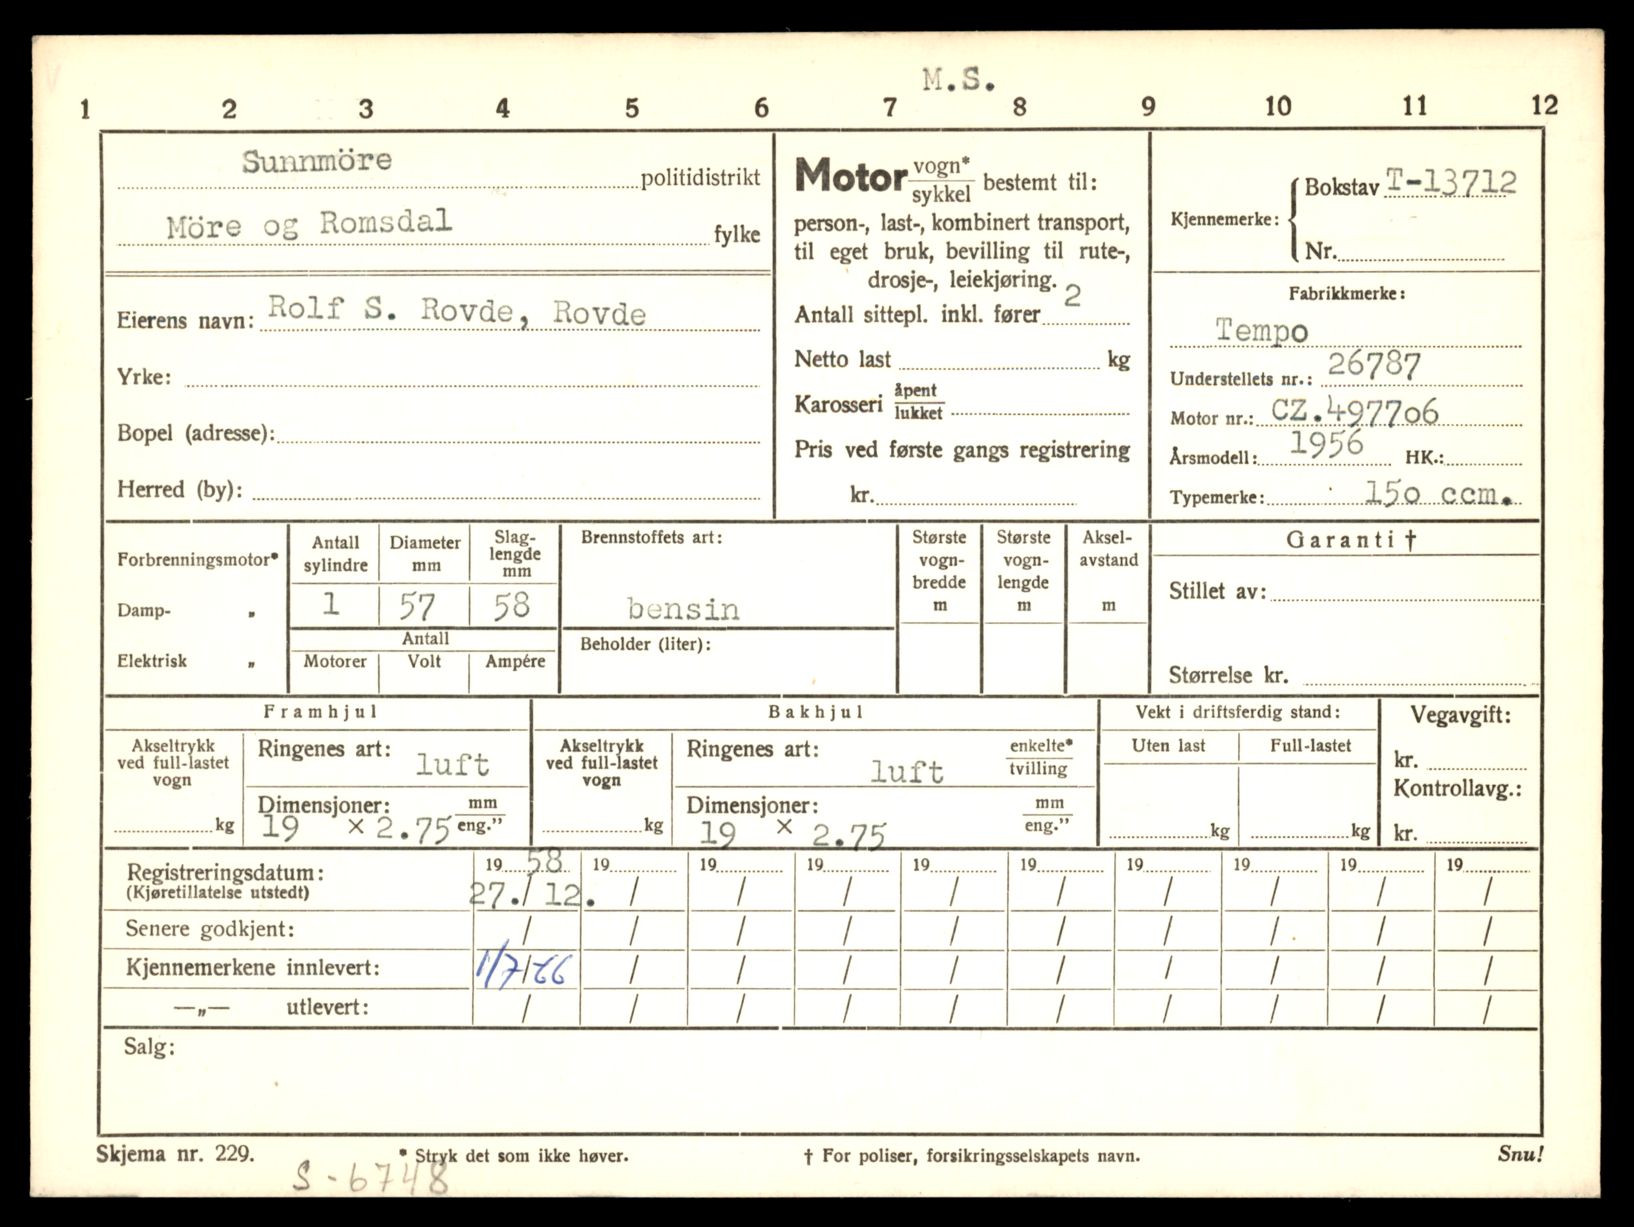 M.S.
1 2 3 4 5 6 7 8 9 10 11 12
Sunnmöre politidistrikt
Möre og Romsdal fylke
Eierens navn: Rolf S. Rovde, Rovde
Yrke:
Bopel (adresse):
Herred (by):
Motor vogn* sykkel bestemt til:
person-, last-, kombinert transport,
til eget bruk, bevilling til rute-,
drosje-, leiekjøring.
Antall sittepl. inkl. fører 2
Netto last kg
Karosseri åpent lukket
Pris ved første gangs registrering
kr.
Kjennemerke: Bokstav T-13712
Nr.
Fabrikkmerke:
Tempo
Understellets nr.: 26787
Motor nr.: CZ.497706
Årsmodell: 1956 HK.:
Typemerke: 150 ccm.
Forbrenningsmotor*
Damp- „
Elektrisk „
Antall sylindre Diameter mm Slag-lengde mm
1 57 58
Antall
Motorer Volt Ampére
Brennstoffets art:
bensin
Beholder (liter):
Største vogn-bredde m
Største vogn-lengde m
Aksel-avstand m
Garanti †
Stillet av:
Størrelse kr.
Framhjul
Akseltrykk ved full-lastet vogn kg
Ringenes art: luft
Dimensjoner: mm eng.”
19 × 2.75
Bakhjul
Akseltrykk ved full-lastet vogn kg
Ringenes art: luft enkelte* tvilling
Dimensjoner: mm eng.”
19 × 2.75
Vekt i driftsferdig stand:
Uten last Full-lastet
kg kg
Vegavgift:
kr.
Kontrollavg.:
kr.
Registreringsdatum: 19 58 19 19 19 19 19 19 19 19 19
(Kjøretillatelse utstedt) 27./ 12. / / / / / / / / /
Senere godkjent: / / / / / / / / / /
Kjennemerkene innlevert: 1/7/66 / / / / / / / / /
—„— utlevert: / / / / / / / / / /
Salg:
Skjema nr. 229. * Stryk det som ikke høver. † For poliser, forsikringsselskapets navn. Snu!
S-6748